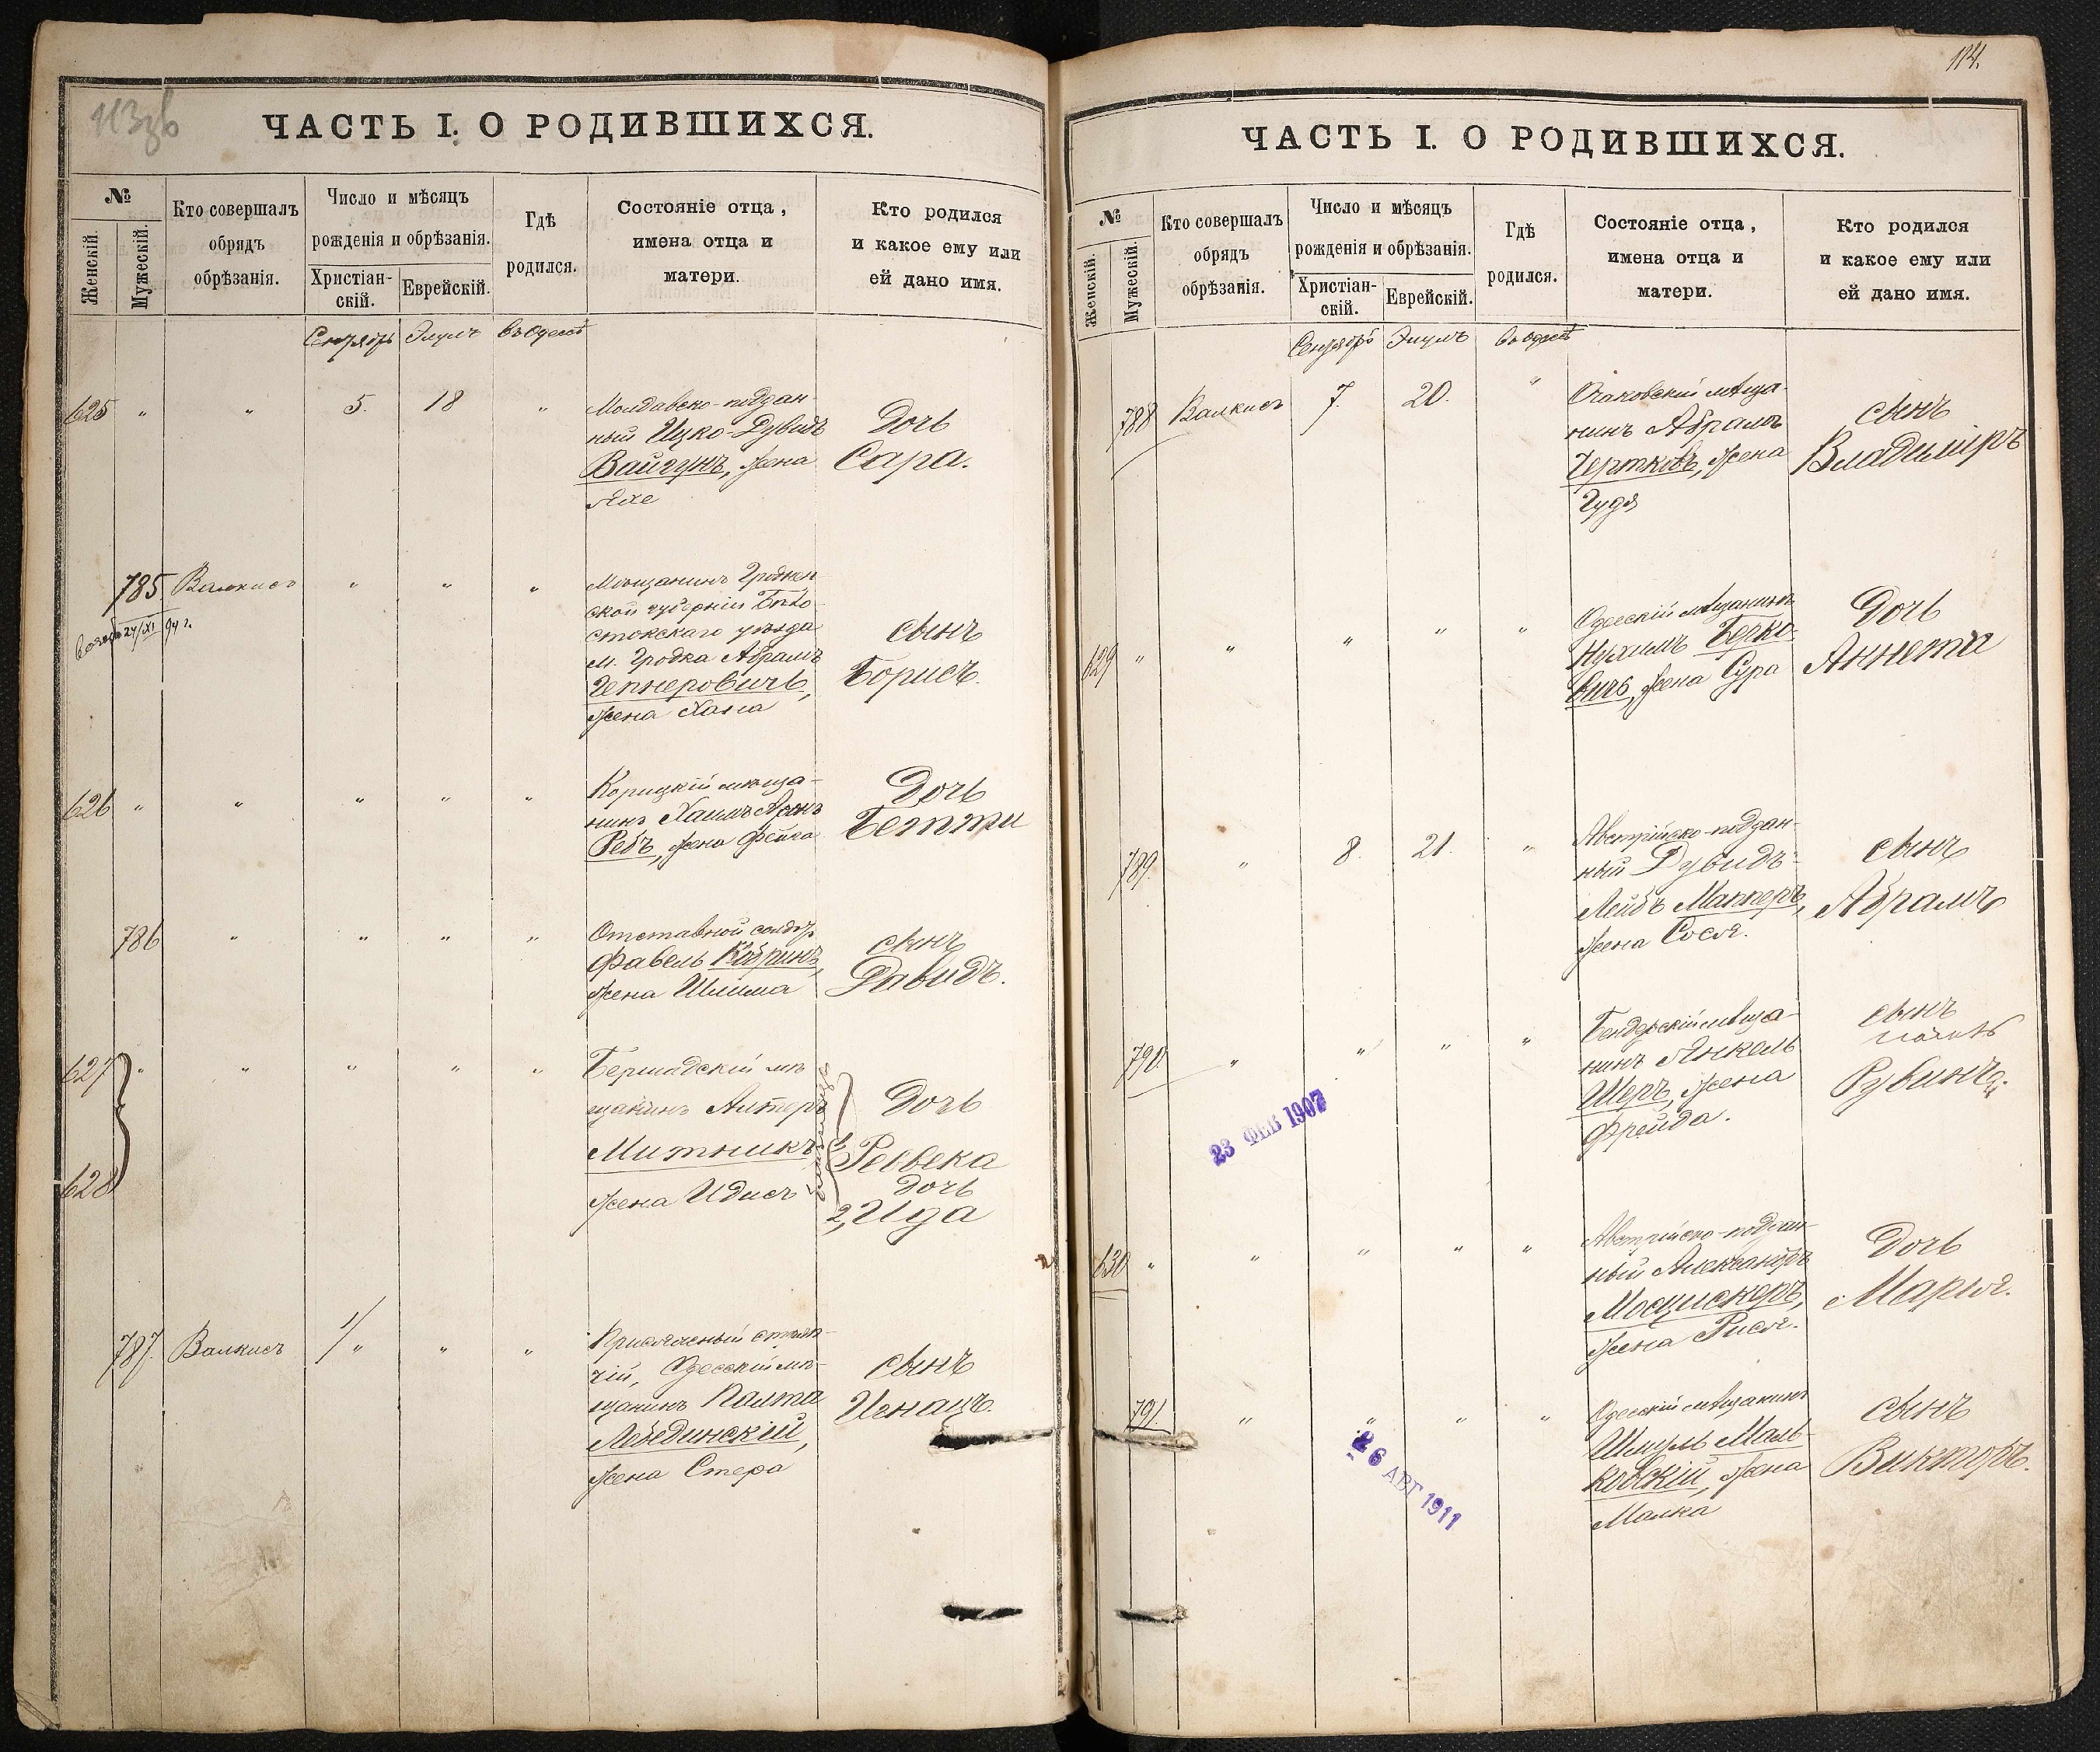 ЧАСТЬ I. О РОДИВШИХСЯ.
№
Женскій.
Мужескій.
Кто совершалъ
обрядъ
обрѣзанія.
Число и мѣсяцъ
рожденія и обрѣзанія.
Христіан-
скій.
Еврейскій.
Гдѣ
родился.
Состояніе отца,
имена отца и
матери.
Кто родился
и какое ему или
ей дано имя.
Сентябрь Элулъ въ Одессѣ
625 " " 5. 18 "
Молдавско-поддан-
ный Ицко-Дувидъ
Вайгунъ, жена
Дочь
Сара.
785. Валкисъ " " "
24/XI 94 г.
Мѣщанинъ Гроднен
ской губерніи Бѣло-
стокскаго уѣзда
м. Гродка Абрамъ
Чепнеровичъ,
жена Хана
сынъ
Борисъ.
626 " " " " "
Корицкій мѣща-
нинъ Хаимъ Аронъ
Ребъ, жена Фейга
Дочь
Бетти
786 " " " "
Отставной солдатъ
Фавель Кобринъ,
жена Шлима
сынъ
Давидъ.
627 " " " " "
628
Бершадскій мѣ
щанинъ Алтеръ
Митникъ
жена Идисъ
Дочь
Ревека
дочь
2, Ида
787. Валкисъ " " "
Присяжный стряп-
чій, Одесскій мѣ-
щанинъ Палта
Лебединскій,
жена Стера
сынъ
Игнацъ.
114.
ЧАСТЬ I. О РОДИВШИХСЯ.
№
Женскій.
Мужескій.
Кто совершалъ
обрядъ
обрѣзанія.
Число и мѣсяцъ
рожденія и обрѣзанія.
Христіан-
скій.
Еврейскій.
Гдѣ
родился.
Состояніе отца,
имена отца и
матери.
Кто родился
и какое ему или
ей дано имя.
Сентябрь Элулъ въ Одессѣ
788 Валкисъ 7. 20. "
Очаковскій мѣща-
нинъ Абрамъ
Чертковъ, жена
Гудя
сынъ
Владиміръ
629 " " " " "
Одесскій мѣщанинъ
Нухимъ Берко-
вичъ, жена Сура
Дочь
Аннета
789. " 8. 21. "
Австрійско-поддан-
ный Дувидъ-
Лейбъ Маннеръ,
жена Сося.
сынъ
Абрамъ
790 " " " "
Бендерскій мѣща-
нинъ Янкель
Шеръ, жена
Фрейда.
сынъ
Рувинъ.
23 ФЕВ 1907
630 " " " " "
Австрійско-поддан-
ный Александръ
Мосцискеръ,
жена Рися.
Дочь
Марія.
791. " " " "
Одесскій мѣщанинъ
Шмуль Маль-
ковскій, жена
Малка
сынъ
Викторъ.
26 АВГ 1911